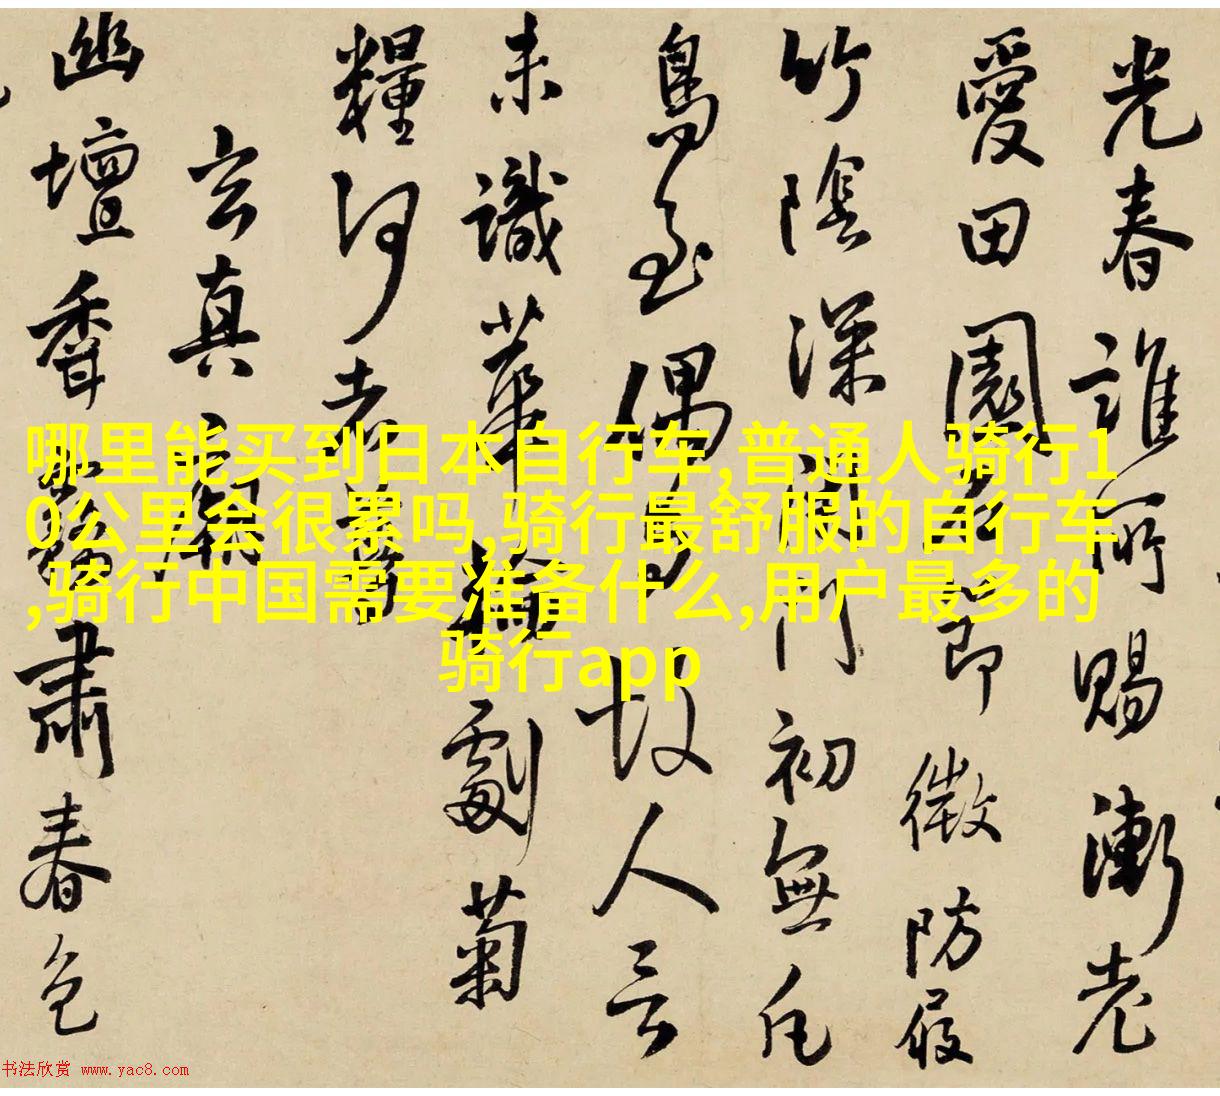 光春誰所賜漸老
愛田園
即微防屐
竹陰深閉門初無凡
鳥至偶與故人言
未識華
劚菊
糧何
玄真
幽壇香
肅春色
哪里能买到日本自行车,普通人骑行1
0公里会很累吗,骑行最舒服的自行车
,骑行中国需要准备什么,用户最多的
骑行app
书法欣赏 www.yac8.com